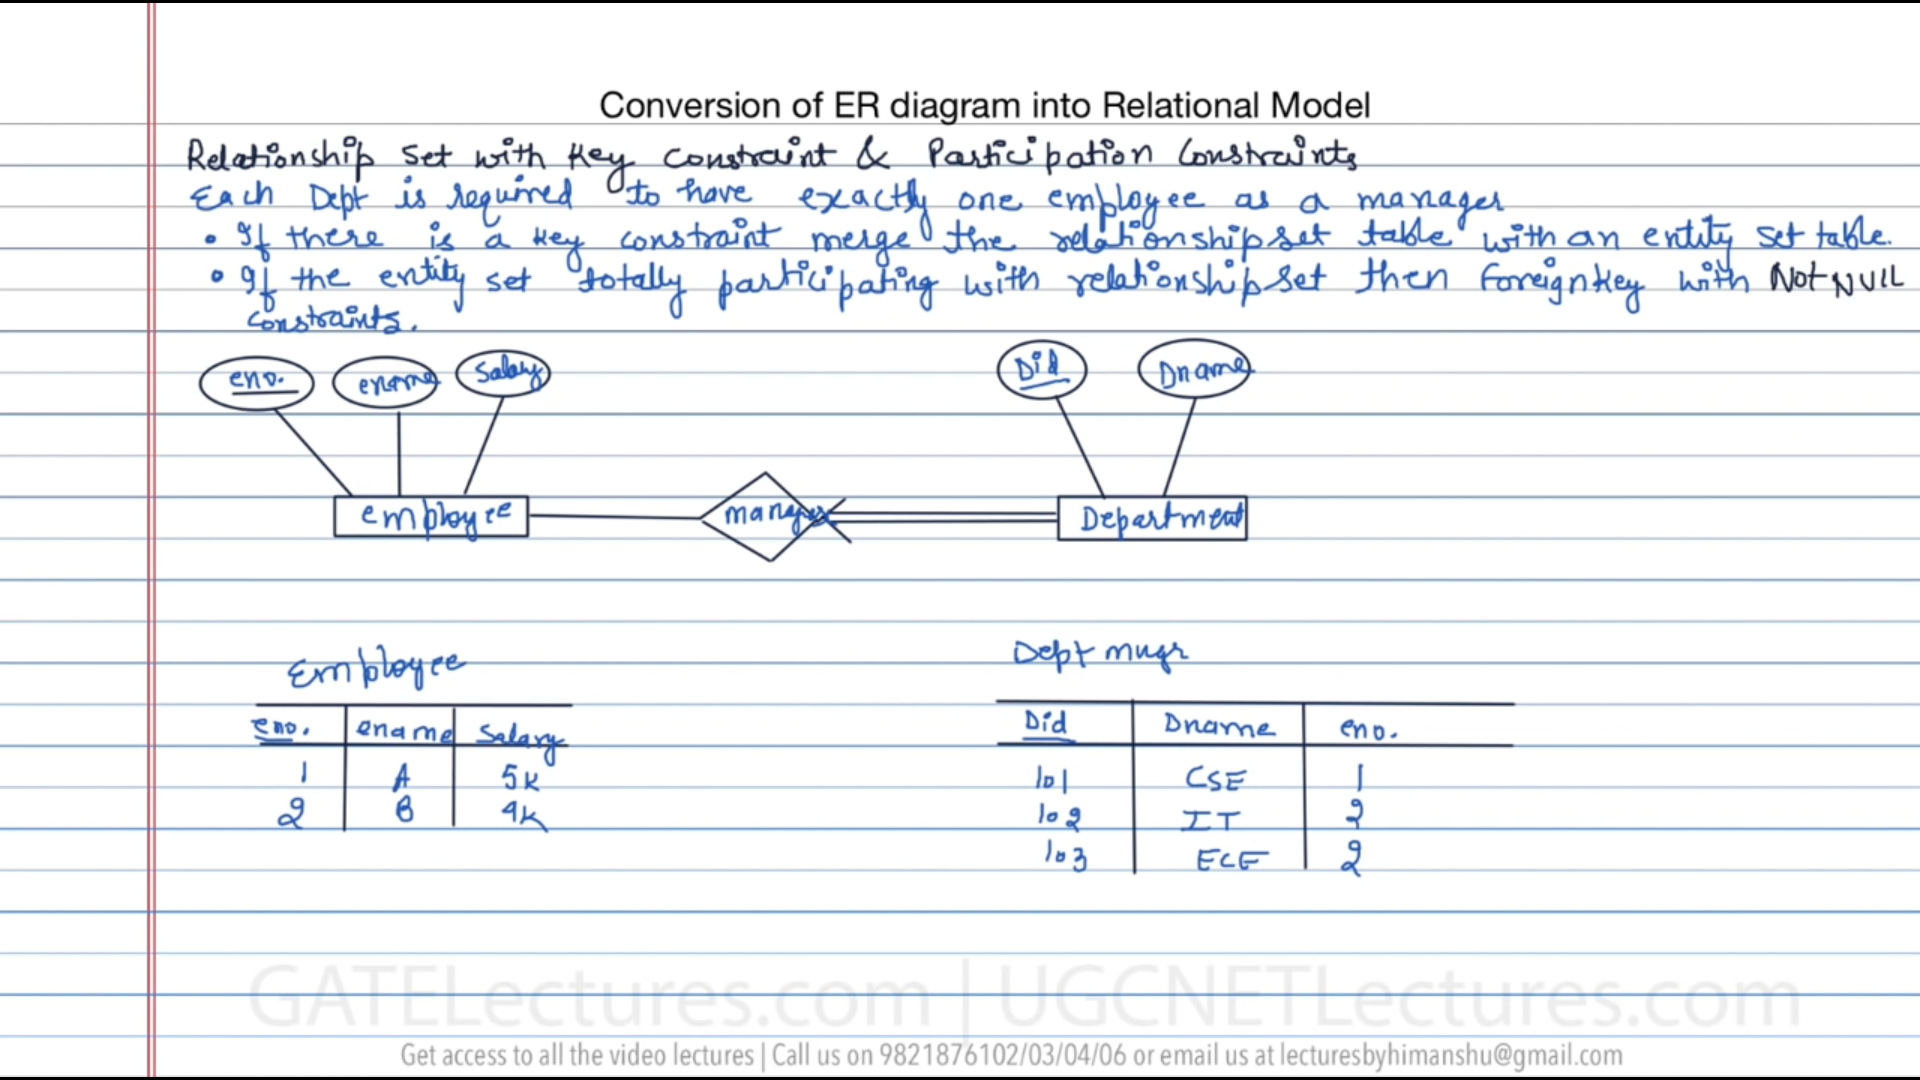 Conversion of ER diagram into Relational Model
Relationship set with Key Constraint & Participation Constraints
Each Dept is required to have exactly one employee as a manager
• If there is a key constraint merge the relationshipset table with an entity set table.
• If the entity set totally participating with relationshipset then foreignkey with Not NUIL
constraints.
eno. ename Salary Did Dname
employee manages Department
Employee Dept mngr
eno. ename Salary Did Dname eno.
1 A 5K 101 CSE 1
2 B 4K 102 IT 2
103 ECE 2
GATELectures.com | UGCNETLectures.com
Get access to all the video lectures | Call us on 9821876102/03/04/06 or email us at lecturesbyhimanshu@gmail.com